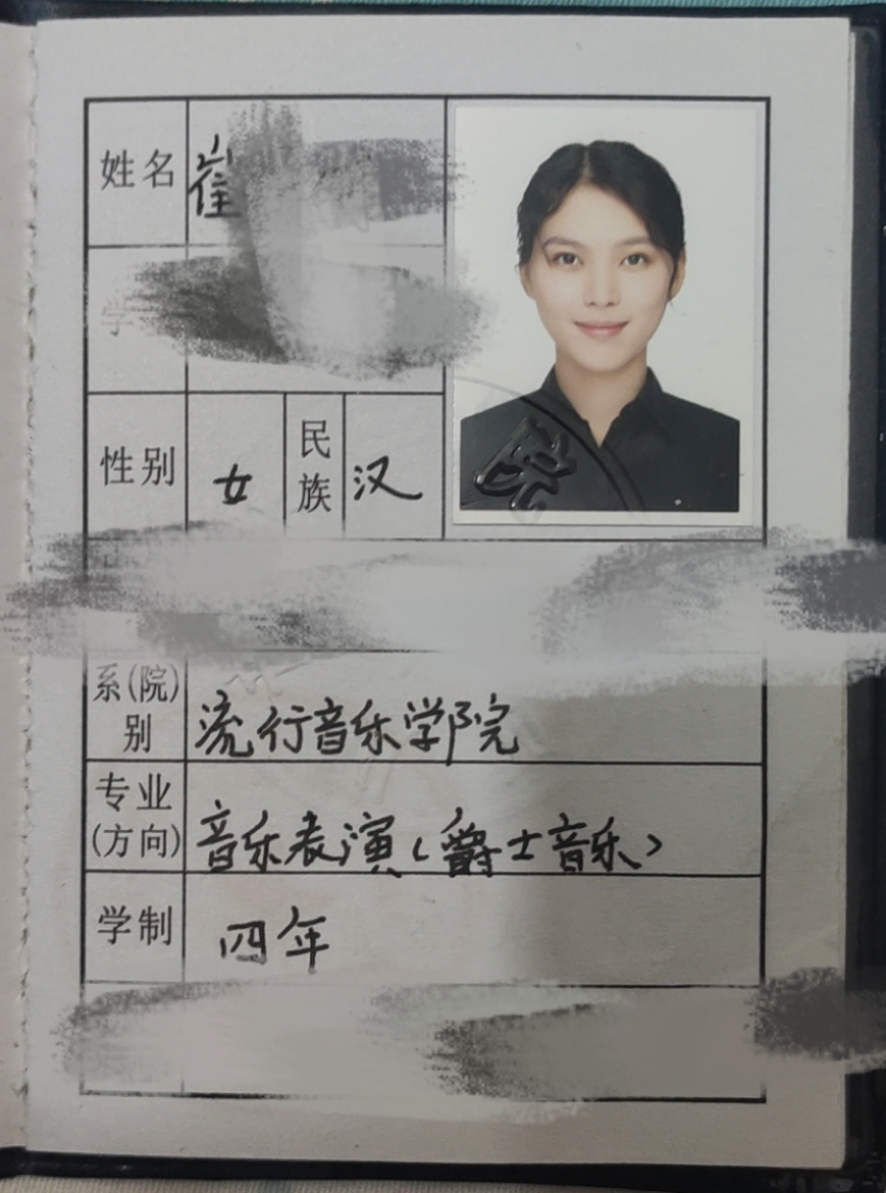 姓名 崔
学
性别 女 民族 汉
系(院)别 流行音乐学院
专业(方向) 音乐表演(爵士音乐)
学制 四年